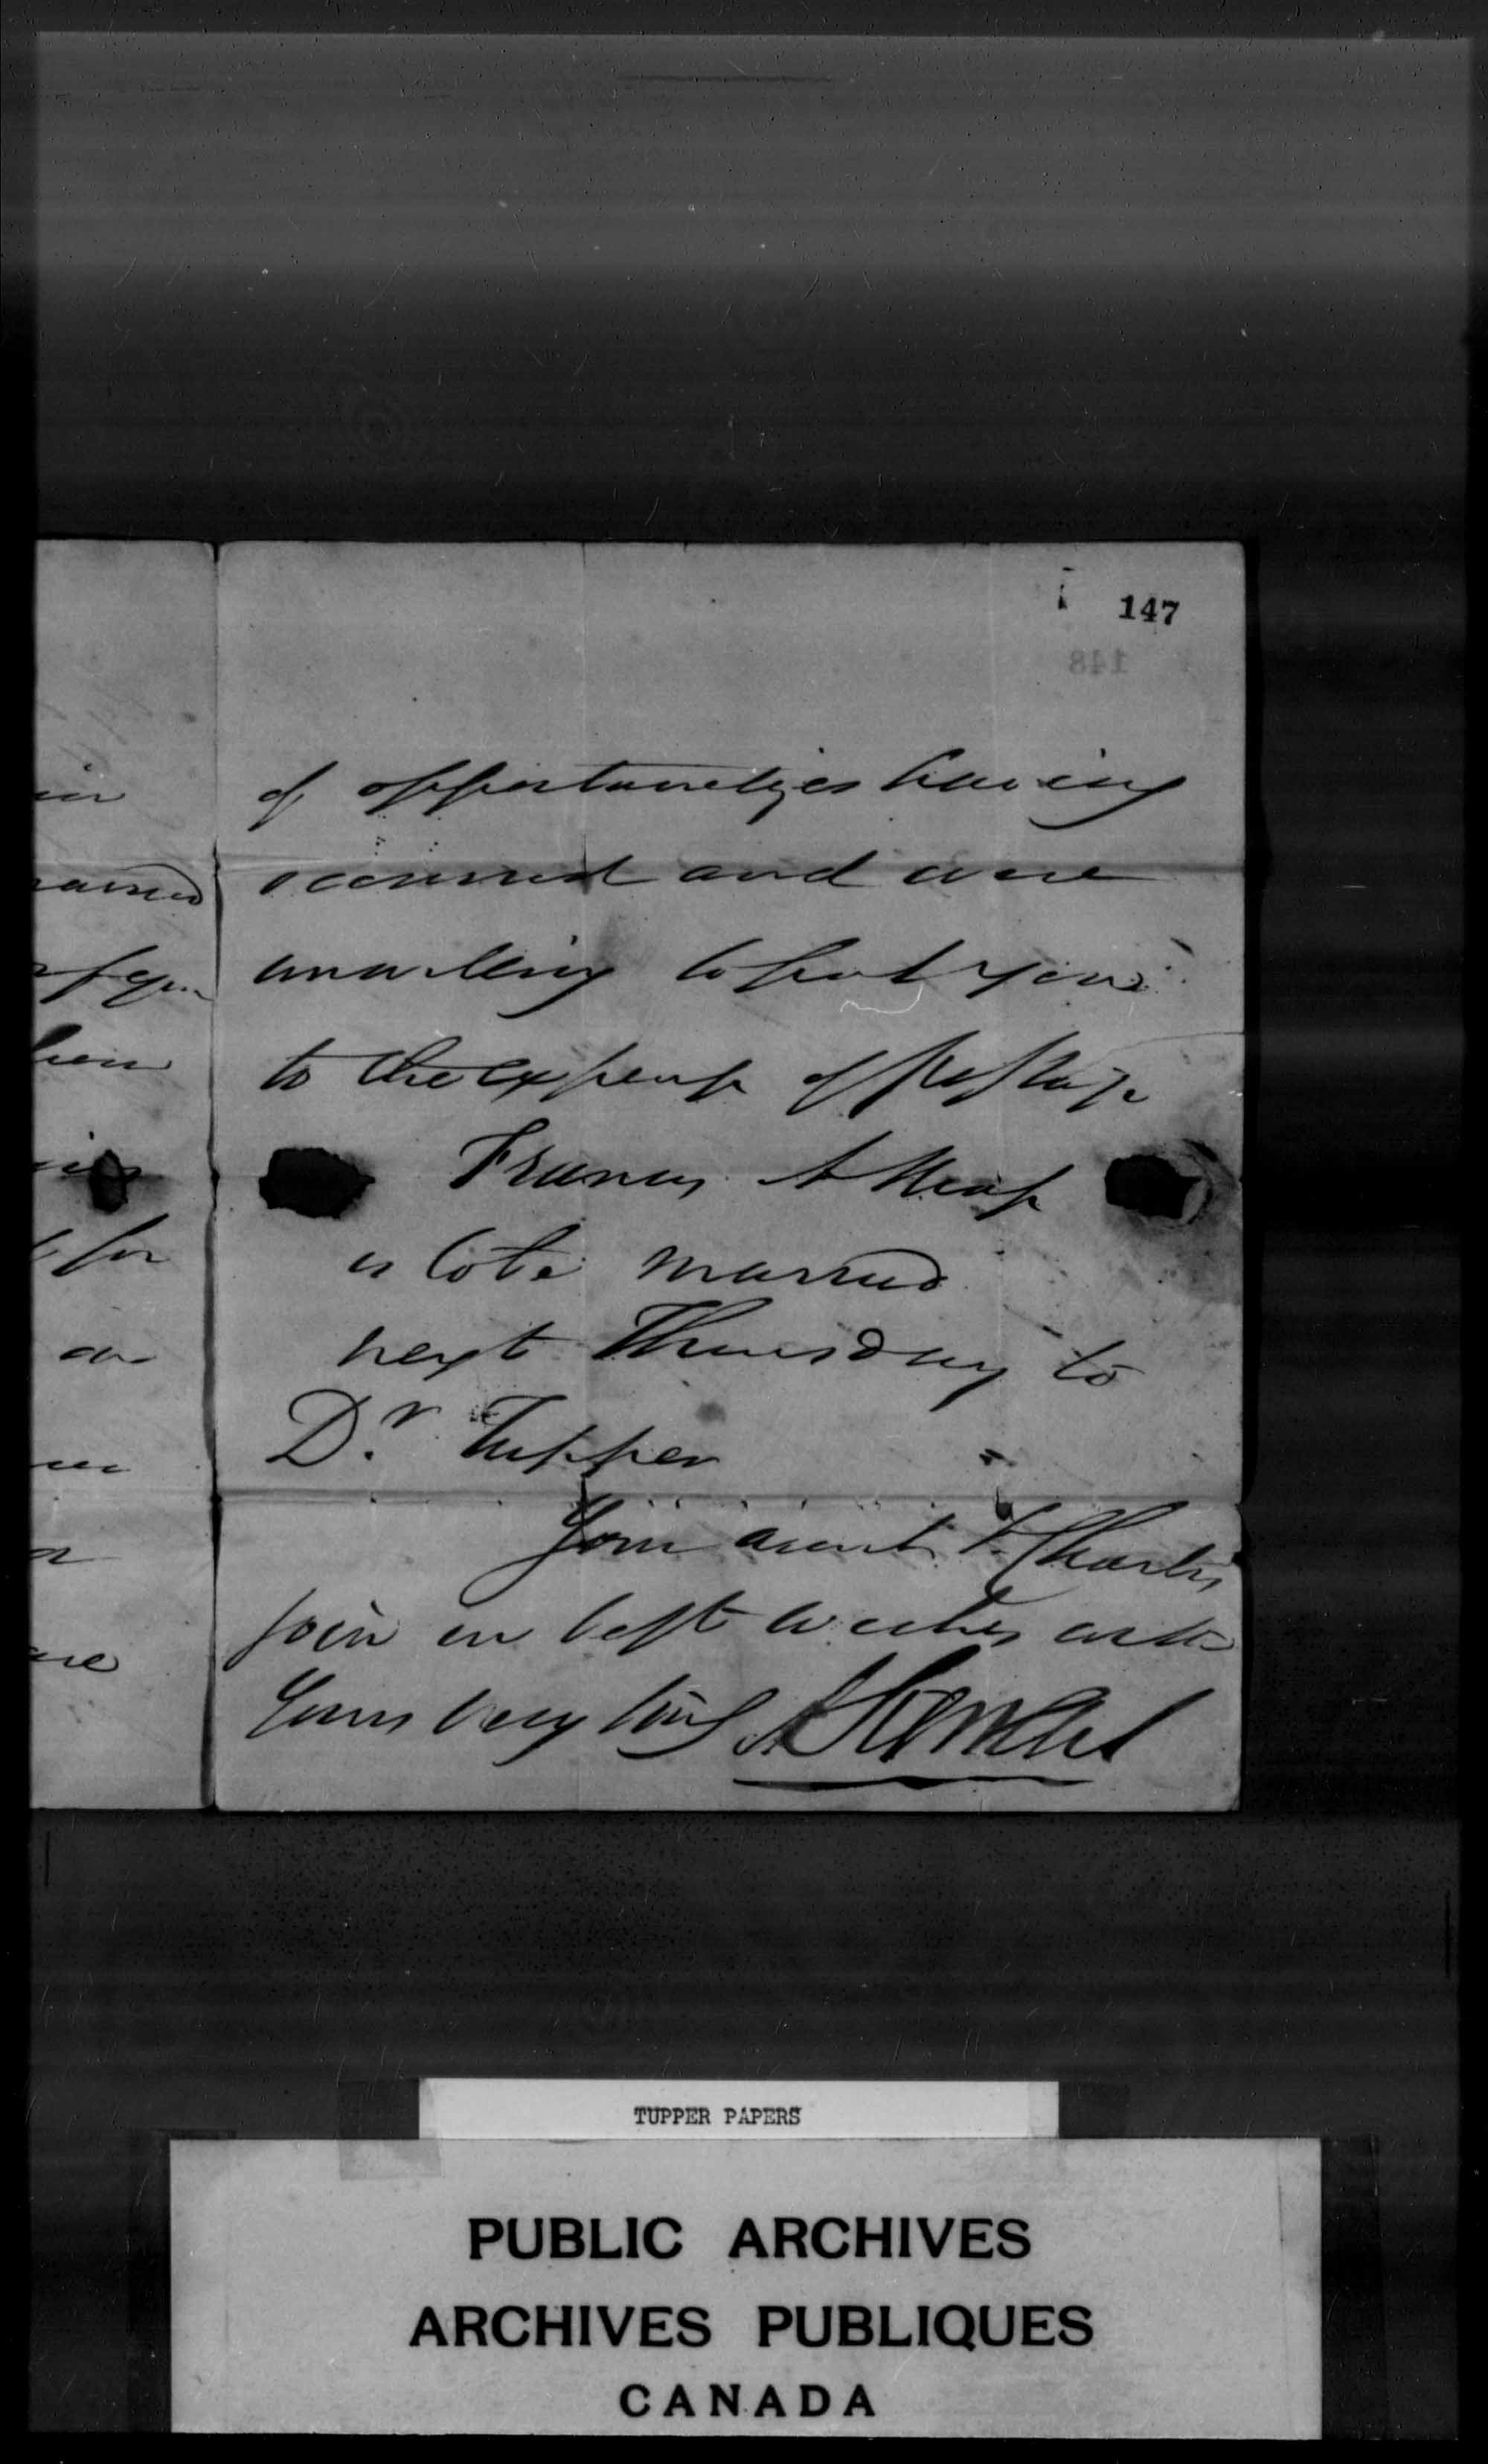 147
148
in
of opportunetyes having
occurred and were
unwilling to put you
to the expense of Postage
Frances A Morse
is to be married
next Thursday to
Dr. Tupper
Your aunt & Charles
join in best wishes with
Yours very truly
for
TUPPER PAPERS
PUBLIC ARCHIVES
ARCHIVES PUBLIQUES
CANADA